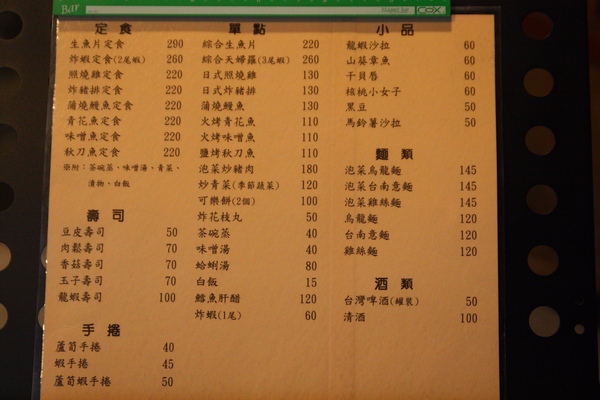 Bar
COX
定食
生魚片定食 290
炸蝦定食(2尾蝦) 260
照燒雞定食 220
炸豬排定食 220
蒲燒鰻魚定食 220
青花魚定食 220
味噌魚定食 220
秋刀魚定食 220
※附：茶碗蒸、味噌湯、青菜、
漬物、白飯
壽司
豆皮壽司 50
肉鬆壽司 70
香菇壽司 70
玉子壽司 70
龍蝦壽司 100
手捲
蘆筍手捲 40
蝦手捲 45
蘆筍蝦手捲 50
單點
綜合生魚片 220
綜合天婦羅(3尾蝦) 260
日式照燒雞 130
日式炸豬排 130
蒲燒鰻魚 130
火烤青花魚 110
火烤味噌魚 110
鹽烤秋刀魚 110
泡菜炒豬肉 180
炒青菜(季節蔬菜) 120
可樂餅(2個) 100
炸花枝丸 50
茶碗蒸 40
味噌湯 40
蛤蜊湯 80
白飯 15
鱈魚肝醋 120
炸蝦(1尾) 60
小品
龍蝦沙拉 60
山葵章魚 60
干貝唇 60
核桃小女子 60
黑豆 50
馬鈴薯沙拉 60
麵類
泡菜烏龍麵 145
泡菜台南意麵 145
泡菜雞絲麵 145
烏龍麵 120
台南意麵 120
雞絲麵 120
酒類
台灣啤酒(罐裝) 50
清酒 100